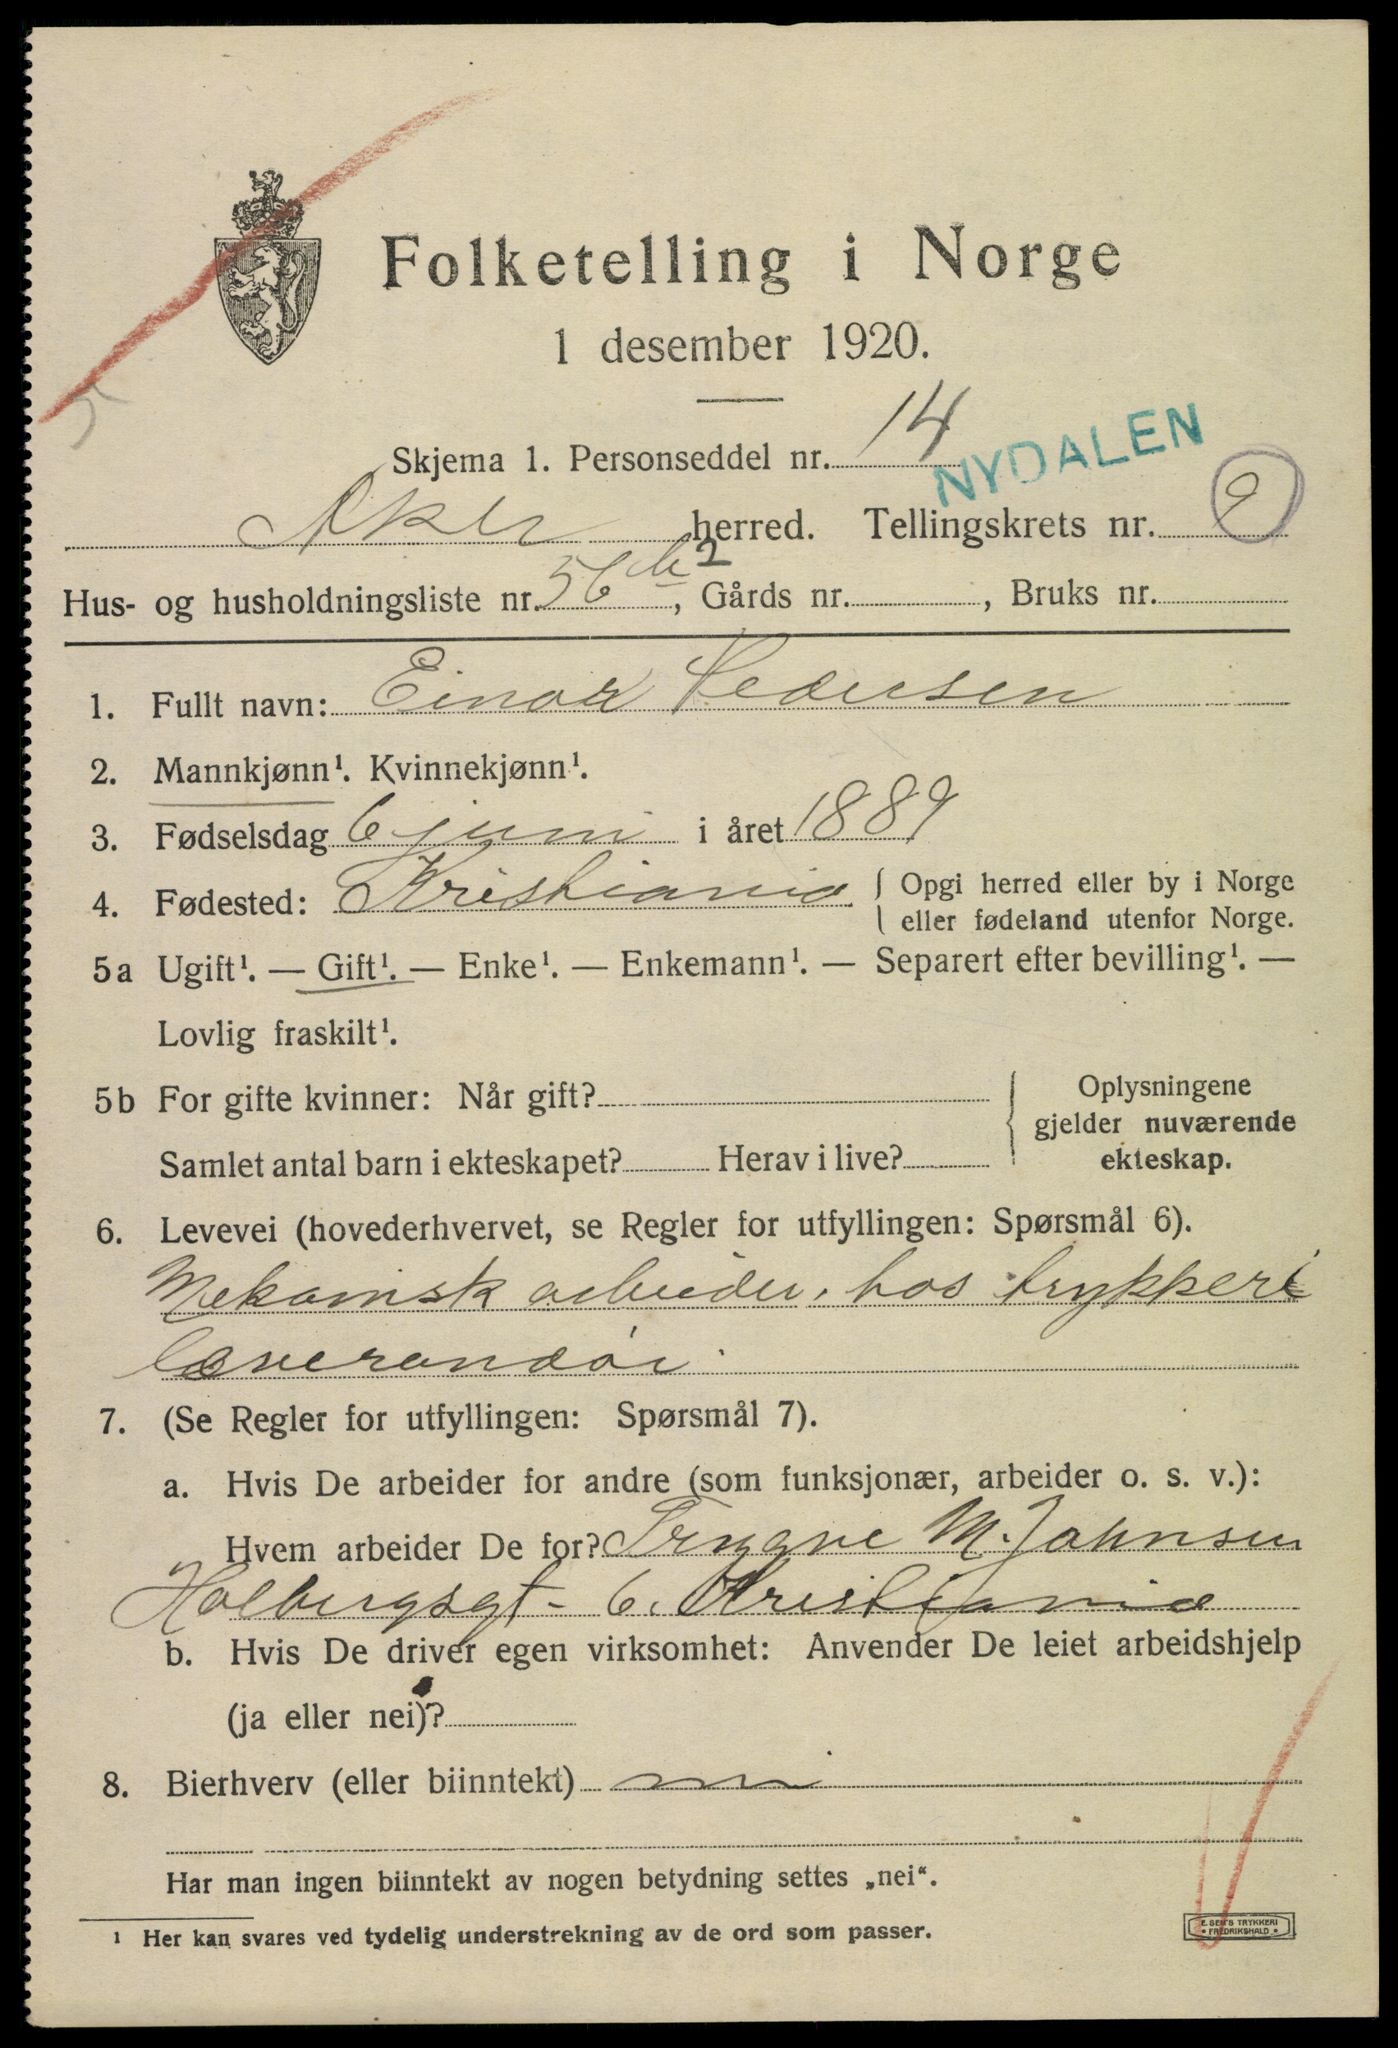 Folketelling i Norge
1 desember 1920.
Skjema 1. Personseddel nr. 14
NYDALEN
Aker herred. Tellingskrets nr. 9
Hus- og husholdningsliste nr. 56 b2, Gårds nr. , Bruks nr.
1. Fullt navn: Einar Pedersen
2. Mannkjønn¹. Kvinnekjønn¹.
3. Fødselsdag 6 juni i året 1889
4. Fødested: Kristiania { Opgi herred eller by i Norge
eller fødeland utenfor Norge.
5a Ugift¹. — Gift¹. — Enke¹. — Enkemann¹. — Separert efter bevilling¹. —
Lovlig fraskilt¹.
5b For gifte kvinner: Når gift?
Samlet antal barn i ekteskapet? Herav i live?
Oplysningene
gjelder nuværende
ekteskap.
6. Levevei (hovederhvervet, se Regler for utfyllingen: Spørsmål 6).
Mekanisk arbeider, hos trykkeri
leverandør.
7. (Se Regler for utfyllingen: Spørsmål 7).
a. Hvis De arbeider for andre (som funksjonær, arbeider o. s. v.):
Hvem arbeider De for? Trygve M. Johnsen
Holbergsgt- 6. Kristiania
b. Hvis De driver egen virksomhet: Anvender De leiet arbeidshjelp
(ja eller nei)?
8. Bierhverv (eller biinntekt) nei
Har man ingen biinntekt av nogen betydning settes „nei“.
¹ Her kan svares ved tydelig understrekning av de ord som passer.
E. SEM'S TRYKKERI
• FREDRIKSHALD •